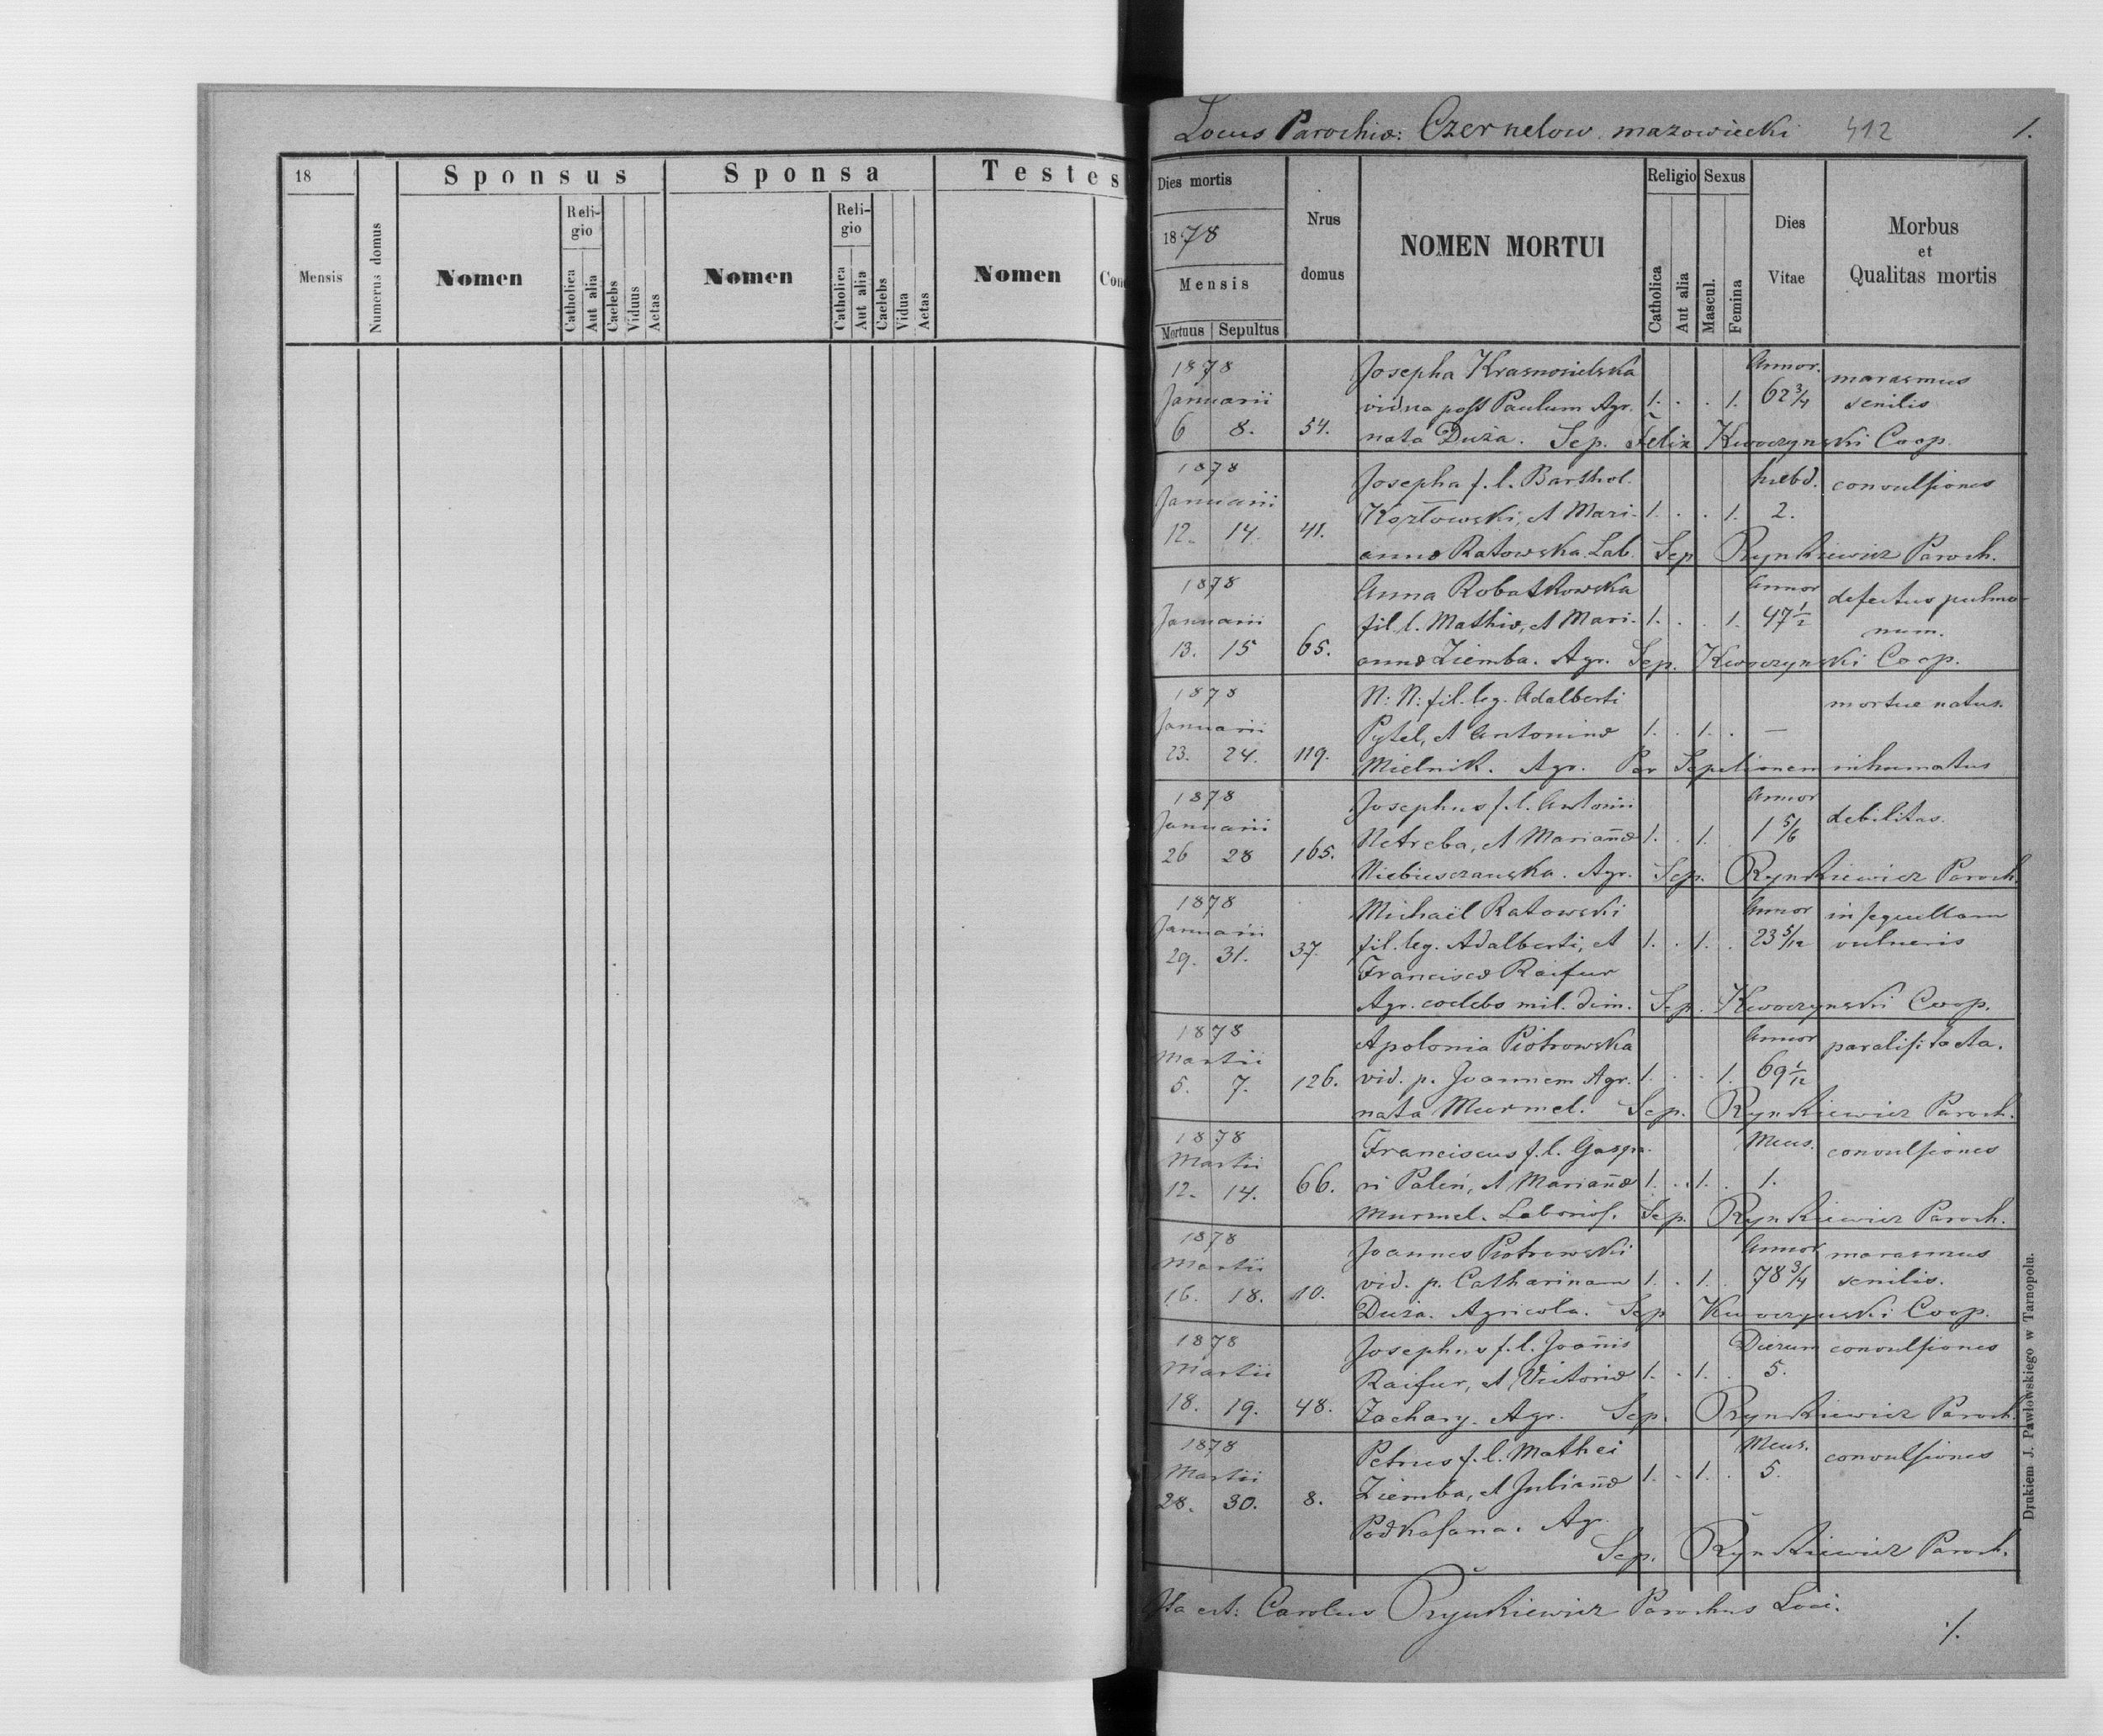 18
Mensis
Numerus domus
Sponsus
Nomen
Reli-
gio
Catholica
Aut alia
Caelebs
Viduus
Aetas
Sponsa
Nomen
Reli-
gio
Catholica
Aut alia
Caelebs
Vidua
Aetas
Testes
Nomen
Con
Locus Parochiæ: Czernelow mazowiecki 412 1.
Dies mortis
1878
Mensis
Mortuus Sepultus
Nrus
domus
NOMEN MORTUI
Religio
Catholica
Aut alia
Sexus
Mascul.
Femina
Dies
Vitae
Morbus
et
Qualitas mortis
1878 Josepha Krasnosielska Annor. marasmus
Januarii vidua post Paulum Agr. 1. . . 1. 62 3/4 senilis
6 8. 54. nata Duża. Sep. Felix Kwoczynski Coop.
1878 Josepha f. l. Barthol. hebd. convulsiones
Januarii Kozłowski, et Mari- 1. . . 1. 2.
12. 14. 41. annæ Ratowska. Lab. Sep Rynkiewicz Paroch.
1878 Anna Robatkowska Annor defectus pulmo-
Januarii fil. l. Mathiæ, et Mari- 1. . . 1. 47 1/2 num.
13. 15 65. annæ Ziemba. Agr. Sep. Kwoczynski Coop.
1878 N: N: fil. leg. Adalberti mortue natus.
Januarii Pytel, et Antoninæ 1. . 1. . —
23. 24. 119. Mielnik. Agr. Per Sepelionem inhumatus
1878 Josephus f. l. Antonii Annor debilitas.
Januarii Netreba, et Mariañæ 1. . 1. 1 5/6
26 28 165. Niebieszczańska. Agr. Sep. Rynkiewicz Paroch.
1878 Michaël Ratowski Annor in sequellam
Januarii fil. leg. Adalberti, et 1. . 1. . 23 5/12 vulneris
29. 31. 37. Franciscæ Raifur
Agr. coelebs mil. dim. Sep. Kwoczynski Coop.
1878 Apolonia Piotrowska Annor paralisi tacta.
Martii vid. p. Joannem Agr. 1. . . 1. 69 1/12
5. 7. 126. nata Murmel. Sep. Rynkiewicz Paroch.
1878 Franciscus f. l. Gaspa- Mens. convulsiones
Martii ri Paleń, et Mariañæ 1. . 1. . 1.
12. 14. 66. Murmel. Laborios. Sep. Rynkiewicz Paroch.
1878 Joannes Piotrowski Annor marasmus
Martii vid. p. Catharinam 1. . 1. . 78 3/4 senilis.
16. 18. 10. Duża. Agricola. Sep Kwoczynski Coop.
1878 Josephus f. l. Joañis Dierum convulsiones
Martii Raifur, et Victoriæ 1. . 1. . 5.
18. 19. 48. Zachary. Agr. Sep. Rynkiewicz Paroch.
1878 Petrus f. l. Mathei Mens. convulsiones
Martii Ziemba, et Juliañæ 1. . 1. . 5.
28. 30. 8. Podkasana. Agr.
Sep. Rynkiewicz Paroch.
Ita est: Carolus Rynkiewicz Parochus Loci.
./.
Drukiem J. Pawłowskiego w Tarnopolu.